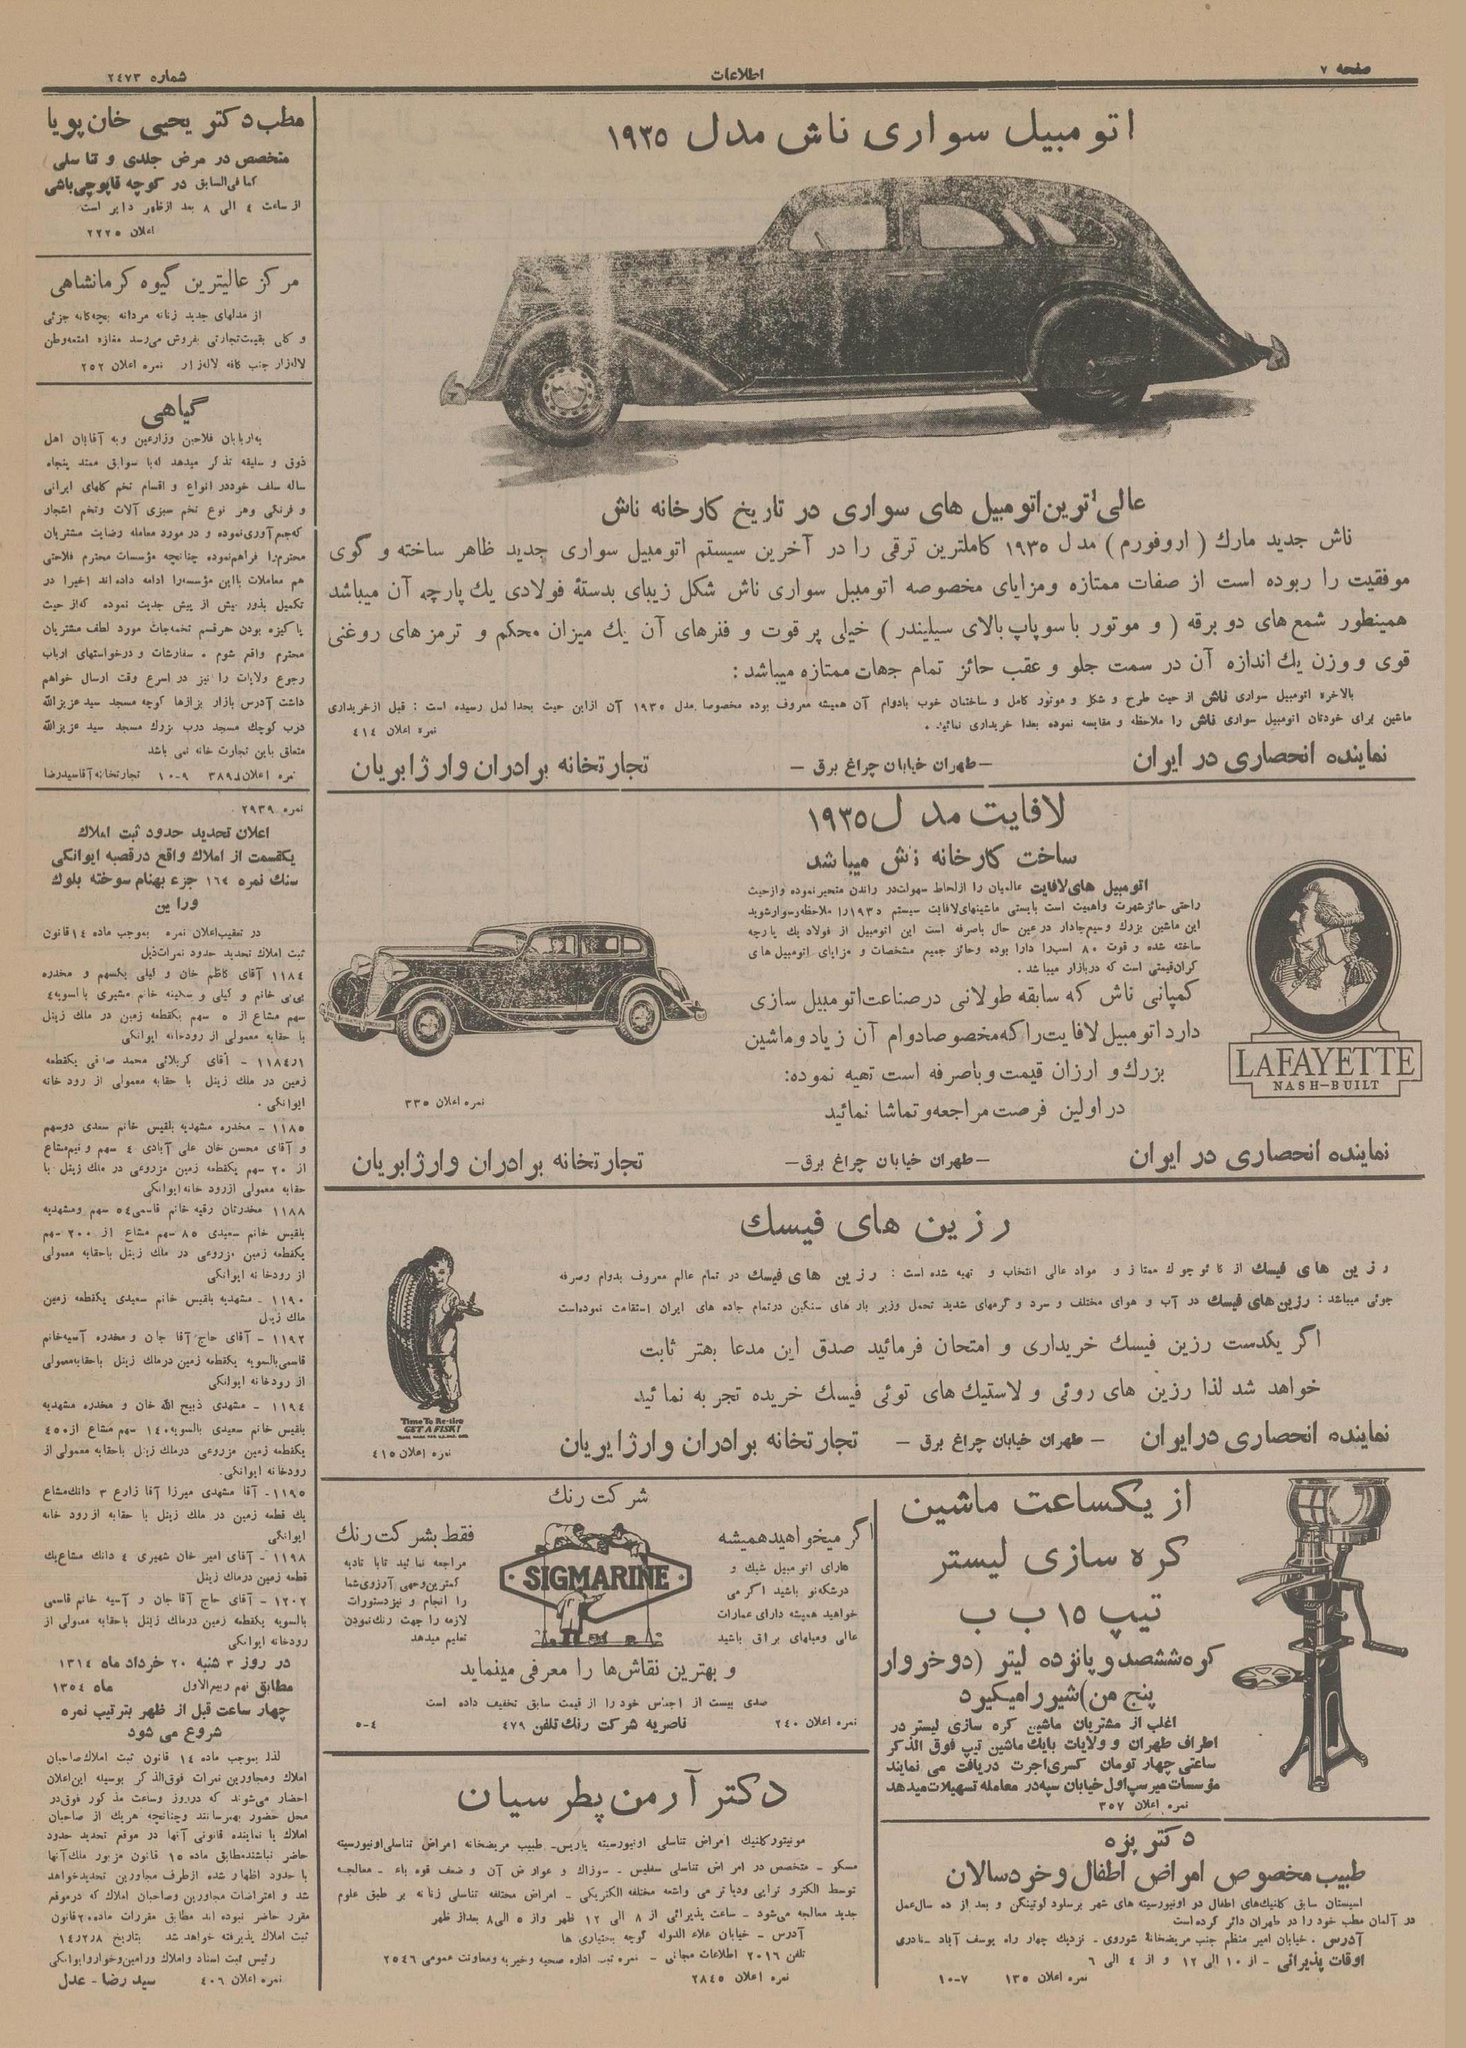 صفحه ۷
اطلاعات
شماره ۲٤۷۳
اتومبیل سواری ناش مدل ۱۹۳۵
عالی ترین اتومبیل های سواری در تاریخ کارخانه ناش
ناش جدید مارك ( اروفورم ) مدل ۱۹۳۵ کاملترین ترقی را در آخرین سیستم اتومبیل سواری جدید ظاهر ساخته و گوی
موفقیت را ربوده است از صفات ممتازه ومزایای مخصوصه اتومبیل سواری ناش شکل زیبای بدستهٔ فولادی یك پارچه آن میباشد
همینطور شمع های دو برقه ( و موتور با سوپاپ بالای سیلیندر ) خیلی پر قوت و فنرهای آن یك میزان محکم و ترمز های روغنی
قوی و وزن یك اندازه آن در سمت جلو و عقب حائز تمام جهات ممتازه میباشد :
بالاخره اتومبیل سواری ناش از حیث طرح و شکل و موتور کامل و ساختمان خوب بادوام آن همیشه معروف بوده مخصوصا مدل ۱۹۳۵ آن ازاین حیث بحدا لمل رسیده است : قبل ازخریداری
ماشین برای خودتان اتومبیل سواری ناش را ملاحظه و مقایسه نموده بعدا خریداری نمائید .
نمره اعلان ٤۱٤
نماینده انحصاری در ایران
– طهران خیابان چراغ برق –
تجارتخانه برادران وارژاپریان
لافایت مدل ۱۹۳۵
ساخت کارخانه ناش میباشد
اتومبیل های لافایت عالمیان را ازلحاظ سهولت در راندن متحیر نموده وازحیث
راحتی حائز شهرت واهمیت است بایستی ماشینهای لافایت سیستم ۱۹۳۵ را ملاحظه وسوار شوید
این ماشین بزرك وسیم جادار درعین حال باصرفه است این اتومبیل از فولاد یك پارچه
ساخته شده و قوت ۸۰ اسب را دارا بوده وحائز جمیع مشخصات و مزایای اتومبیل های
گران قیمتی است که دربازار میباشد .
کمپانی ناش که سابقه طولانی در صناعت اتومبیل سازی
دارد اتومبیل لافایت را که مخصوصا دوام آن زیاد و ماشین
بزرك و ارزان قیمت و باصرفه است تهیه نموده :
در اولین فرصت مراجعه و تماشا نمائید
LAFAYETTE
NASH-BUILT
نمره اعلان ۳۳۵
نماینده انحصاری در ایران
– طهران خیابان چراغ برق –
تجارتخانه برادران وارژاپریان
رزین های فیسك
رزین های فیسك از کائوچوك ممتاز و مواد عالی انتخاب و تهیه شده است : رزین های فیسك در تمام عالم معروف بدوام وصرفه
جوئی میباشد : رزین های فیسك در آب و هوای مختلف و سرد و گرمهای شدید تحمل وزیر بار های سنگین درتمام جاده های ایران استقامت نموده است
اگر یکدست رزین فیسك خریداری و امتحان فرمائید صدق این مدعا بهتر ثابت
خواهد شد لذا رزین های روئی و لاستیك های توئی فیسك خریده تجربه نمائید
Time To Re-tire
GET A FISK!
نمره اعلان ٤۱۵
نماینده انحصاری درایران
– طهران خیابان چراغ برق –
تجارتخانه برادران وارژاپریان
از یکساعت ماشین
کره سازی لیستر
تیپ ۱۵ ب ب
کره ششصد و پانزده لیتر (دو خروار
پنج من) شیر را میگیرد
اغلب از مشتریان ماشین کره سازی لیستر در
اطراف طهران و ولایات بایك ماشین تیپ فوق الذکر
ساعتی چهار تومان کسری اجرت دریافت می نمایند
مؤسسات میرسپ اول خیابان سپه در معامله تسهیلات میدهد
نمره اعلان ۳۵۷
شرکت رنك
اگر میخواهید همیشه
دارای اتومبیل شیك و
درشکه نو باشید اگر می
خواهید همیشه دارای عمارات
عالی ومبلهای براق باشید
SIGMARINE
فقط بشرکت رنك
مراجعه نمائید تابا تادیه
کمترین وجهی آرزوی شما
را انجام و نیز دستورات
لازمه را جهت رنك نمودن
تعلیم میدهد
و بهترین نقاش ها را معرفی مینماید
صدی بیست از اجناس خود را از قیمت سابق تخفیف داده است
نمره اعلان ۲٤۰
ناصریه شرکت رنك تلفن ٤۷۹
٤-۵
دکتر آرمن پطرسیان
مونیتور کلنیك امراض تناسلی اونیورسیته پاریس- طبیب مریضخانه امراض تناسلی اونیورسیته
مسکو – متخصص در امراض تناسلی سفلیس – سوزاك و عوارض آن و ضعف قوه باء – معالجه
توسط الکترو تراپی ودیاترمی واشعه مختلفه الکتریکی – امراض مختلفه تناسلی زنانه بر طبق علوم
جدید معالجه می‌شود – ساعت پذیرائی از ۸ الی ۱۲ ظهر واز ۵ الی ۸ بعداز ظهر
آدرس – خیابان علاء الدوله کوچه بختیاری ها
تلفن ۲۰۱۶ اطلاعات مجانی – نمره ثبت اداره صحیه وخیریه ومعاونت عمومی ۲۵٤۶
نمره اعلان ۲۸٤۵
دکتر بزه
طبیب مخصوص امراض اطفال و خردسالان
اسیستان سابق کلنیك‌های اطفال در اونیورسیته های شهر برسلود لوتینگن و بعد از ده سال عمل
در آلمان مطب خود را در طهران دائر کرده است
آدرس . خیابان امیر منظم جنب مریضخانهٔ شوروی – نزدیك چهار راه یوسف آباد – نادری
اوقات پذیرائی – از ۱۰ الی ۱۲ و از ٤ الی ۶
نمره اعلان ۱۳۵
۷-۱۰
مطب دکتر یحیی خان پویا
متخصص در مرض جلدی و تناسلی
کما فی السابق در کوچه قاپوچی باشی
از ساعت ٤ الی ۸ بعد از ظهر دایر است
اعلان ۲۲۲۵
مرکز عالیترین گیوه کرمانشاهی
از مدلهای جدید زنانه مردانه بچه گانه جزئی
و کلی بقیمت تجارتی بفروش می‌رسد مغازه امتعه وطن
لاله‌زار جنب کافه لاله‌زار نمره اعلان ۲۵۲
گیاهی
به اربابان فلاحین وزارعین وبه آقایان اهل
ذوق و سلیقه تذکر میدهد که با سوابق ممتد پنجاه
ساله سلف خود در انواع و اقسام تخم گلهای ایرانی
و فرنگی وهر نوع تخم سبزی آلات وتخم اشجار
که جمع آوری نموده و در مورد معامله رضایت مشتریان
محترم را فراهم نموده چنانچه مؤسسات محترم فلاحتی
هم معاملات با این مؤسسه را ادامه داده اند اخیرا در
تکمیل بذور بیش از پیش جدیت نموده که از حیث
پاکیزه بودن هر قسم تخمه جات مورد لطف مشتریان
محترم واقع شوم . سفارشات و درخواستهای ارباب
رجوع ولایات را نیز در اسرع وقت ارسال خواهم
داشت آدرس بازار بزازها کوچه مسجد سید عزیزالله
درب کوچك مسجد درب بزرك مسجد سید عزیزالله
متعلق باین تجارت خانه نمی باشد
نمره اعلان ۳۸۹ ۹-۱۰ تجارتخانه آقا سید رضا
نمره ۲۹۳۹
اعلان تحدید حدود ثبت املاك
یکقسمت از املاك واقع در قصبه ایوانکی
سنك نمره ۱۶٤ جزء بهنام سوخته بلوك
ورامین
در تعقیب اعلان نمره بموجب ماده ۱٤ قانون
ثبت املاك تحدید حدود نمرات ذیل
۱۱۸٤ آقای کاظم خان و لیلی یکسهم و مخدره
بی بی خانم و کیلی و سکینه خانم مشیری بالسویه ٤
سهم مشاع از ۵ سهم یکقطعه زمین در ملك زینل
با حقابه معمولی از رودخانه ایوانکی
۱۱۸٤/۱ – آقای کربلائی محمد صادقی یکقطعه
زمین در ملك زینل با حقابه معمولی از رود خانه
ایوانکی .
۱۱۸۵ – مخدره مشهدیه بلقیس خانم سعدی دو سهم
و آقای محسن خان علی آبادی ٤ سهم و نیم مشاع
از ۲۰ سهم یکقطعه زمین مزروعی در ملك زینل با
حقابه معمولی ازرود خانه ایوانکی
۱۱۸۸ مخدرتان رقیه خانم قاسمی ۵٤ سهم ومشهدیه
بلقیس خانم سعیدی ۸۵ سهم مشاع از ۲۰۰ سهم
یکقطعه زمین مزروعی در ملك زینل باحقابه معمولی
از رودخانه ایوانکی
۱۱۹۰ – مشهدیه بلقیس خانم سعیدی یکقطعه زمین
ملك زینل
۱۱۹۲ – آقای حاج آقا جان و مخدره آسیه خانم
قاسمی بالسویه یکقطعه زمین درملك زینل باحقابه معمولی
از رودخانه ایوانکی
۱۱۹٤ – مشهدی ذبیح الله خان و مخدره مشهدیه
بلقیس خانم سعیدی بالسویه ۱٤۰ سهم مشاع از ٤۵۰
یکقطعه زمین مزروعی درملك زینل باحقابه معمولی از
رودخانه ایوانکی.
۱۱۹۵- آقا مشهدی میرزا آقا زارع ۳ دانك مشاع
یك قطعه زمین در ملك زینل با حقابه از رود خانه
ایوانکی
۱۱۹۸ – آقای امیر خان شهیری ٤ دانك مشاع یك
قطعه زمین درملك زینل
۱۲۰۲ – آقای حاج آقا جان و آسیه خانم قاسمی
بالسویه یکقطعه زمین درملك زینل باحقابه معمولی از
رودخانه ایوانکی
در روز ۳ شنبه ۲۰ خرداد ماه ۱۳۱٤
مطابق نهم ربیع الاول ماه ۱۳۵٤
چهار ساعت قبل از ظهر بترتیب نمره
شروع می شود
لذا بموجب ماده ۱٤ قانون ثبت املاك صاحبان
املاك ومجاورین نمرات فوق الذکر بوسیله این اعلان
احضار می‌شوند که در روز وساعت مذکور فوق در
محل حضور بهمرسانند وچنانچه هریك از صاحبان
املاك یا نماینده قانونی آنها در موقع تحدید حدود
حاضر نباشند مطابق ماده ۱۵ قانون مزبور ملك آنها
با حدود اظهار شده ازطرف مجاورین تحدید خواهد
شد و اعتراضات مجاورین وصاحبان املاك که در موقع
مقرر حاضر نبوده اند مطابق مقررات ماده ۲۰ قانون
ثبت املاك پذیرفته خواهد شد بتاریخ ۱٤/۲/۸
رئیس ثبت اسناد واملاك ورامین وخوار وایوانکی
نمره اعلان ٤۰۶ سید رضا – عدل